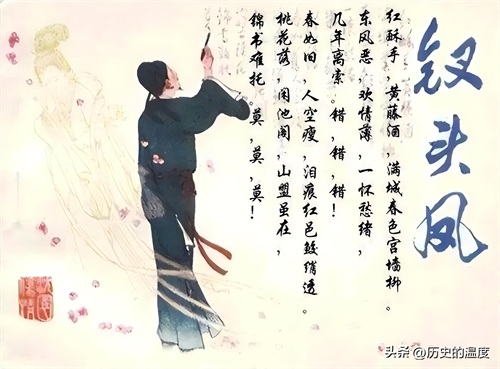 钗头凤
红酥手，黄藤酒，满城春色宫墙柳。
东风恶，欢情薄，一怀愁绪，
几年离索。错，错，错！
春如旧，人空瘦，泪痕红邑鲛绡透。
桃花落，闲池阁，山盟虽在，
锦书难托。莫，莫，莫！
头条 @历史的温度